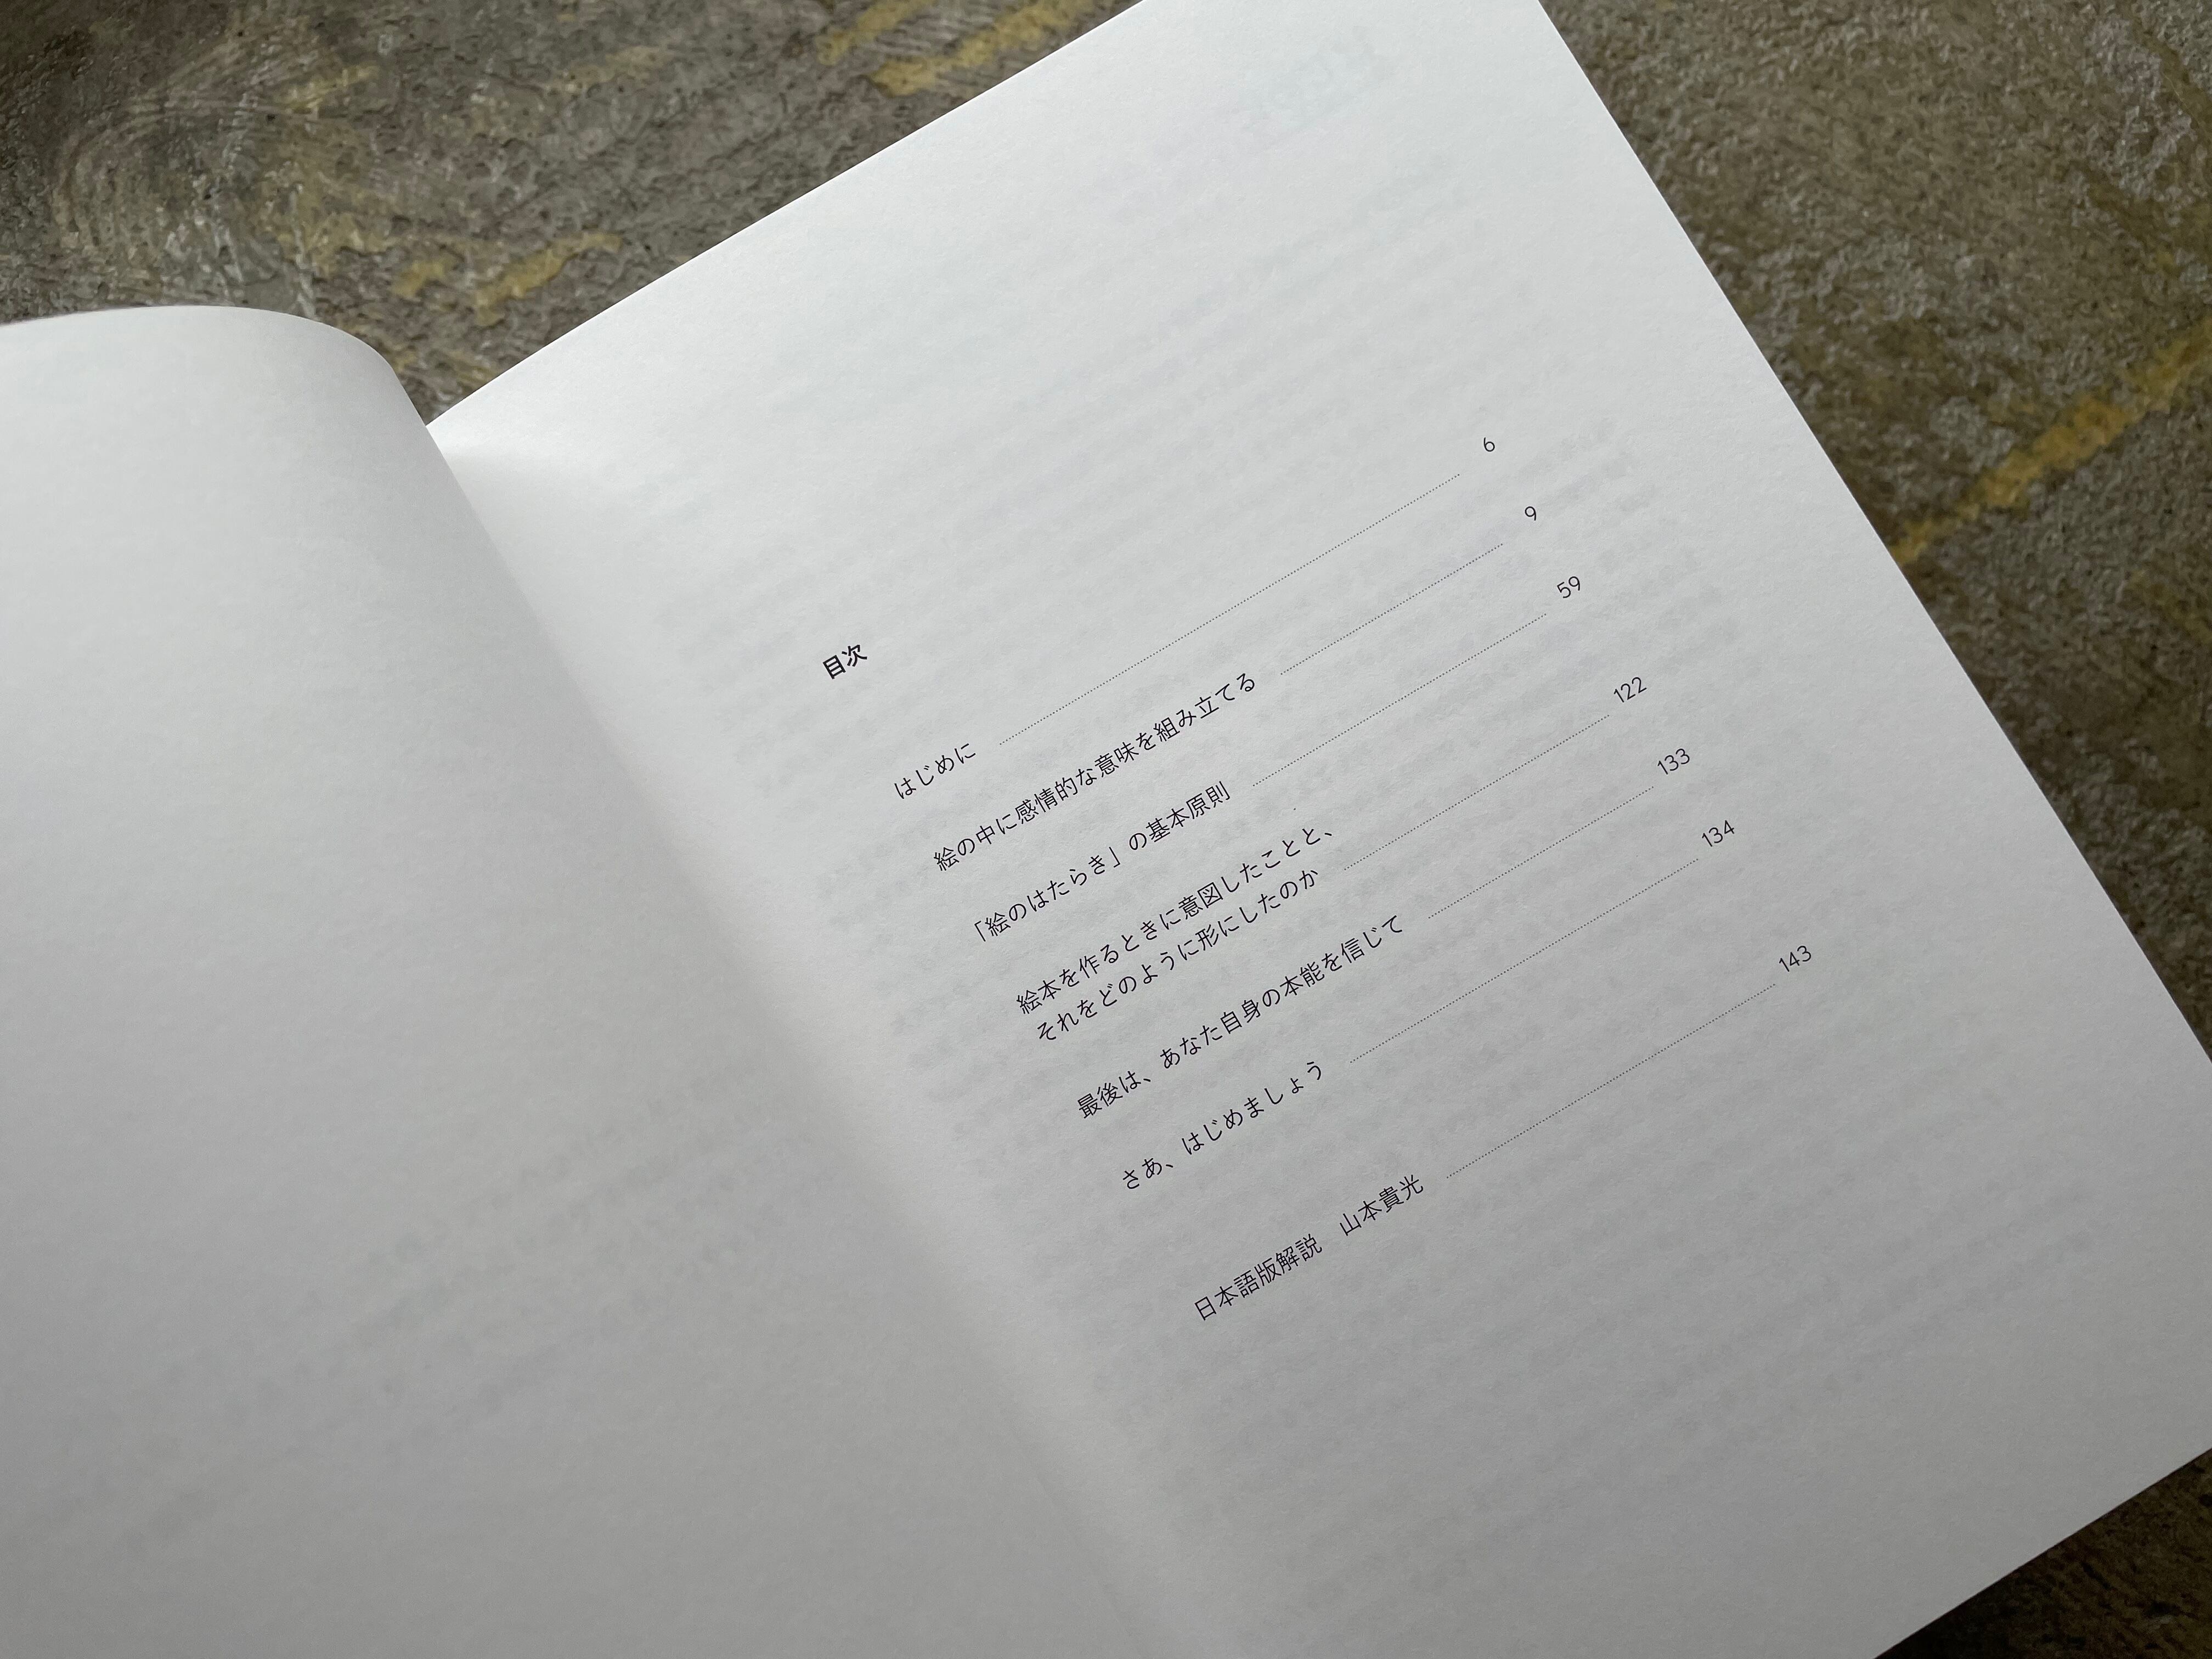 目次
はじめに 6
絵の中に感情的な意味を組み立てる 9
「絵のはたらき」の基本原則 59
絵本を作るときに意図したことと、
それをどのように形にしたのか 122
最後は、あなた自身の本能を信じて 133
さあ、はじめましょう 134
日本語版解説　山本貴光 143